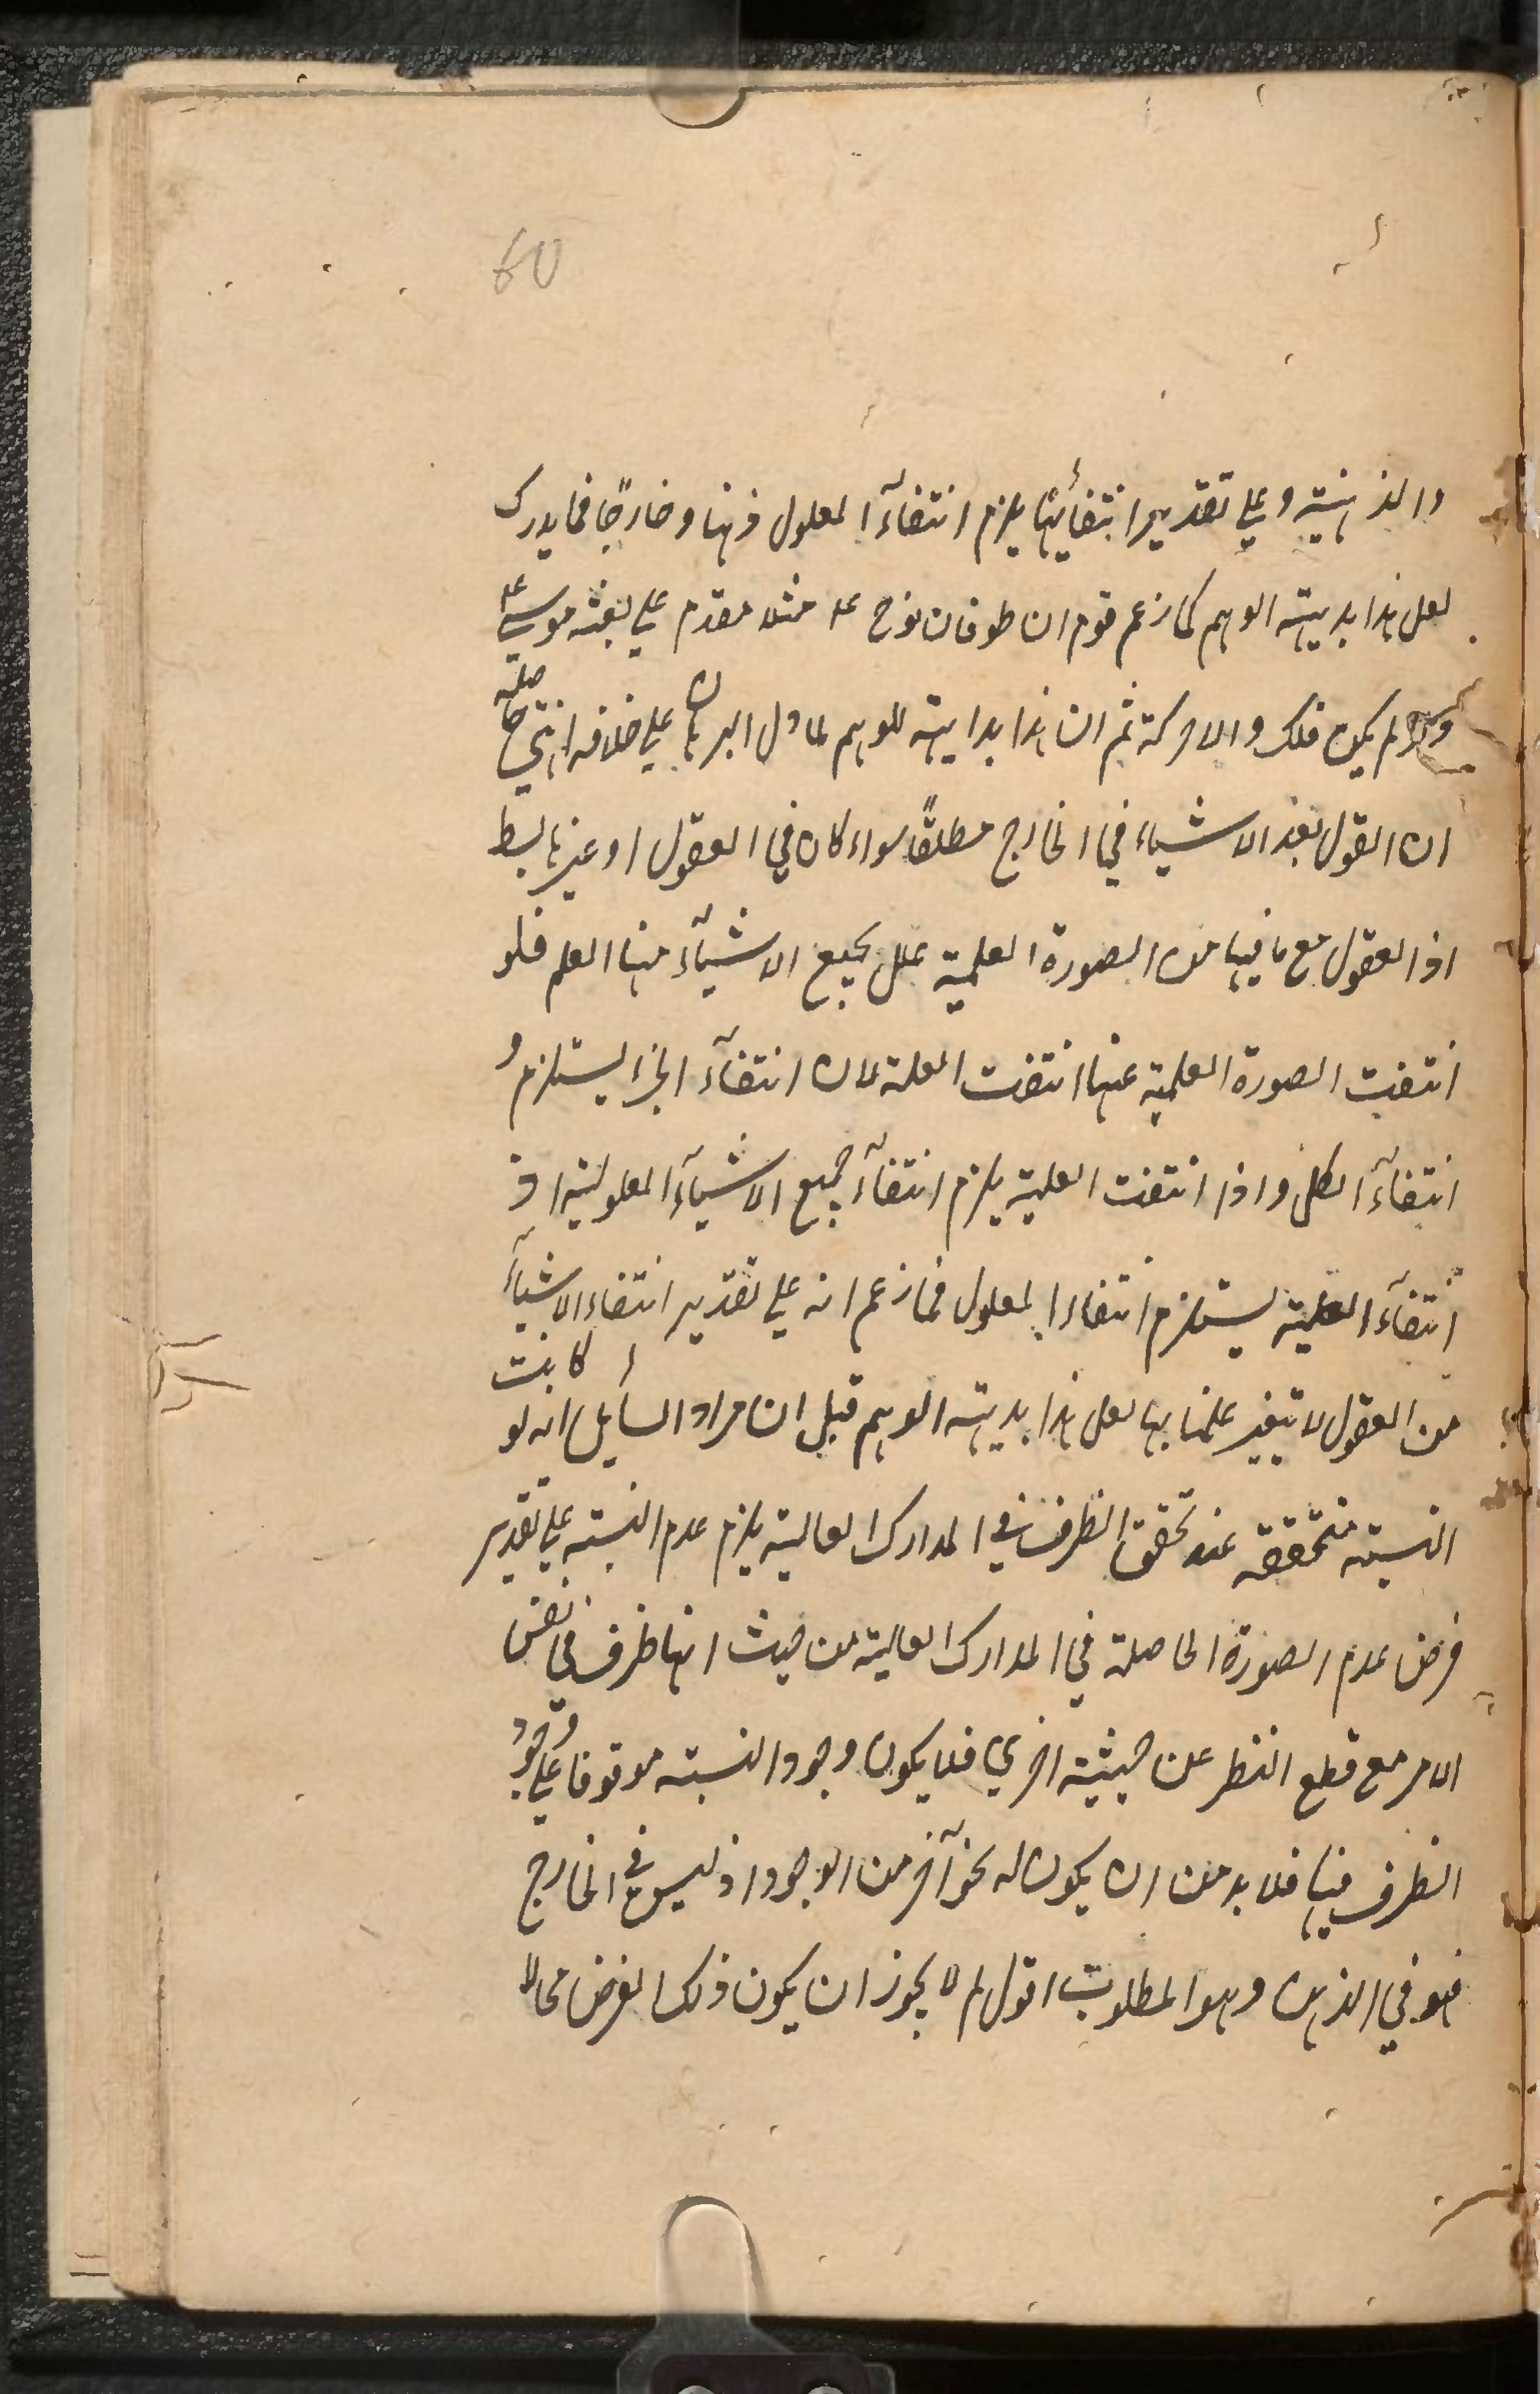 60
والذهنية وعلي تقدير انتفائها يلزم انتفآء المعلول ذهنا وخارجًا فما يدرك
لعل هذا بديهة الوهم كما زعم قوم ان طوفان نوح عم مثلا مقدم علي بعثه موسي عم
ولو لم يكن فلك ولا حركة ثم ان هذا بداهة للوهم لما دل البرهان علي خلافه انتهي حاصله
ان القول بفقد الاشياء في الخارج مطلقًا سواء كان في العقول او غيرها بسط
اذ العقول مع ما فيها من الصورة العلمية علل لجميع الاشيآء منها العلم فلو
انتفت الصورة العلمية عنها انتفت العلة لان انتفآء الجزء يستلزم
انتفآء الكل واذا انتفت العلية يلزم انتفآء جميع الاشيآء المعلولية اذ
انتفآء العلية يستلزم انتفاء المعلول فما زعم انه علي تقدير انتفاء الاشيآء
من العقول لا تتغير علمنا بها لعل هذا بديهة الوهم قيل ان مراد السايل انه لو كانت
النسبة متحققة عند تحقق الظرف في المدارك العالية يلزم عدم النسبة علي تقدير
فرض عدم الصورة الحاصلة في المدارك العالية من حيث انها ظرف في نفس
الامر مع قطع النظر عن حيثية اخري فلا يكون وجود النسبة موقوفا علي وجود
الظرف فيها فلا بد من ان يكون له نحو آخر من الوجود اذ ليس في الخارج
فهو في الذهن وهو المطلوب اقول لم لا يجوز ان يكون ذلك الفرض محالا